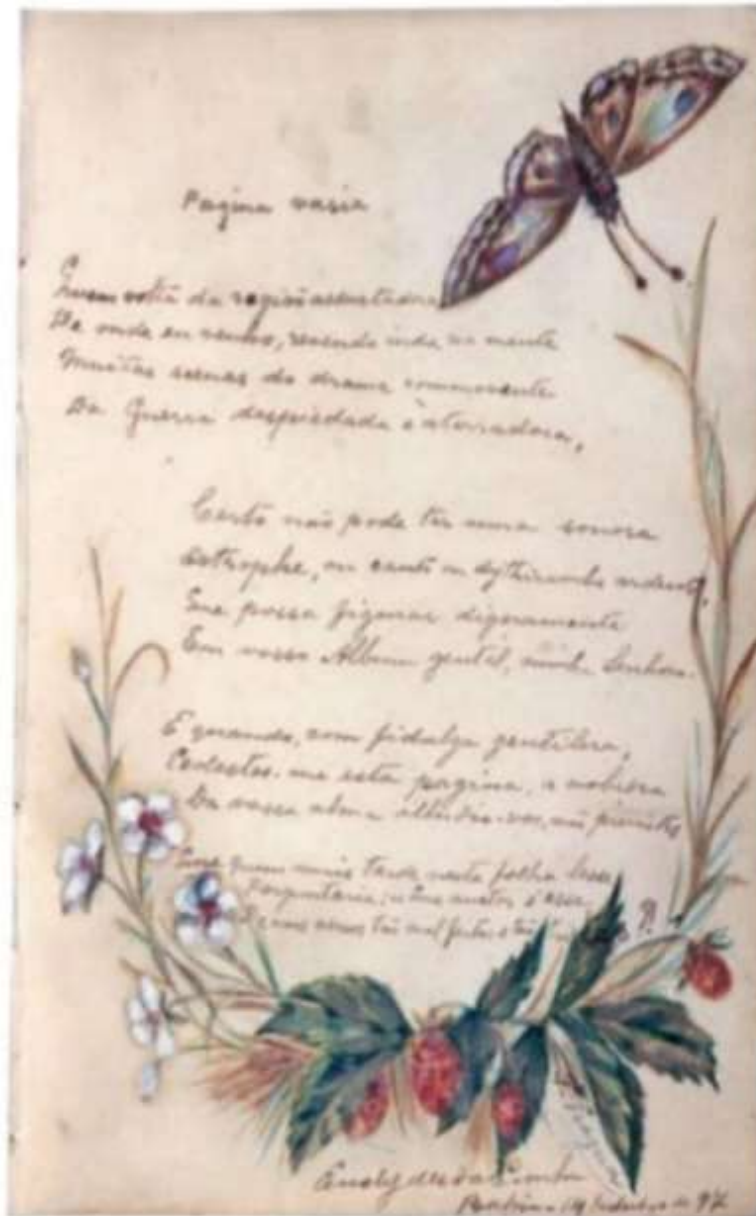 Pagina vasia
Quem volta da região assustadora
De onde eu venho, revendo inda na mente
Muitas scenas do drama commovente
Da Guerra despiedada e aterradora,
Certo não pode ter uma sonora
Estrophe, ou canto ou dythirambo ardente,
Que possa figurar dignamente
Em vosso Album gentil, minha Senhora.
E quando, com fidalga gentileza,
Cedestes-me esta pagina, a nobreza
Da vossa alma illudiu-vos, não previstes
Que quem mais tarde nesta folha lesse
Perguntaria: "Que autor é esse
De uns versos tão mal feitos e tão
Euclydes da Cunha
Bahia 14 Outubro de 97